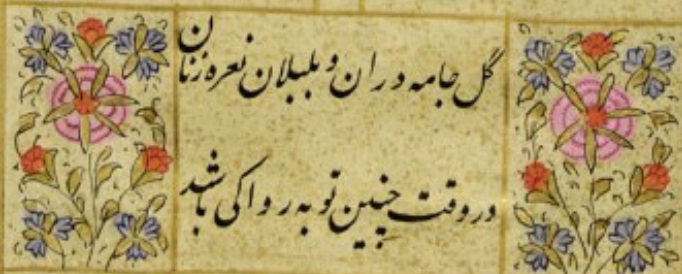 گل جامه دران و بلبلان نعره زنان
در وقت چنین توبه روا کی باشد